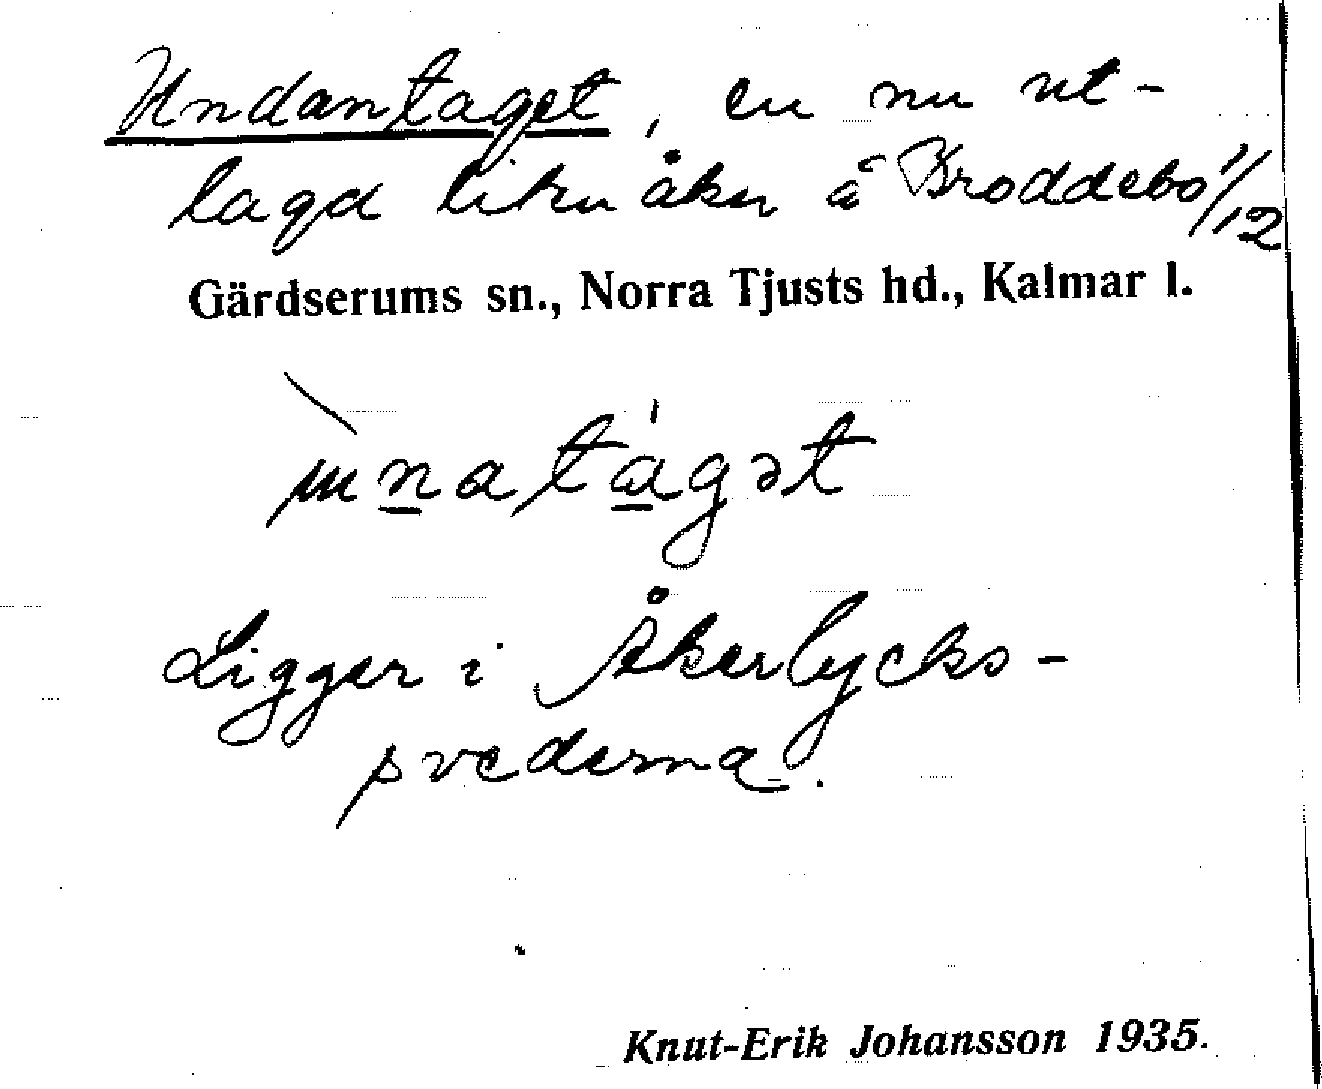 Undantaget, en nu ut-
lagd liten åker å Broddebo 1/12
Gärdserums sn., Norra Tjusts hd., Kalmar l.
Ligger i Åkerlycks-
svederna.
Knut-Erik Johansson 1935.